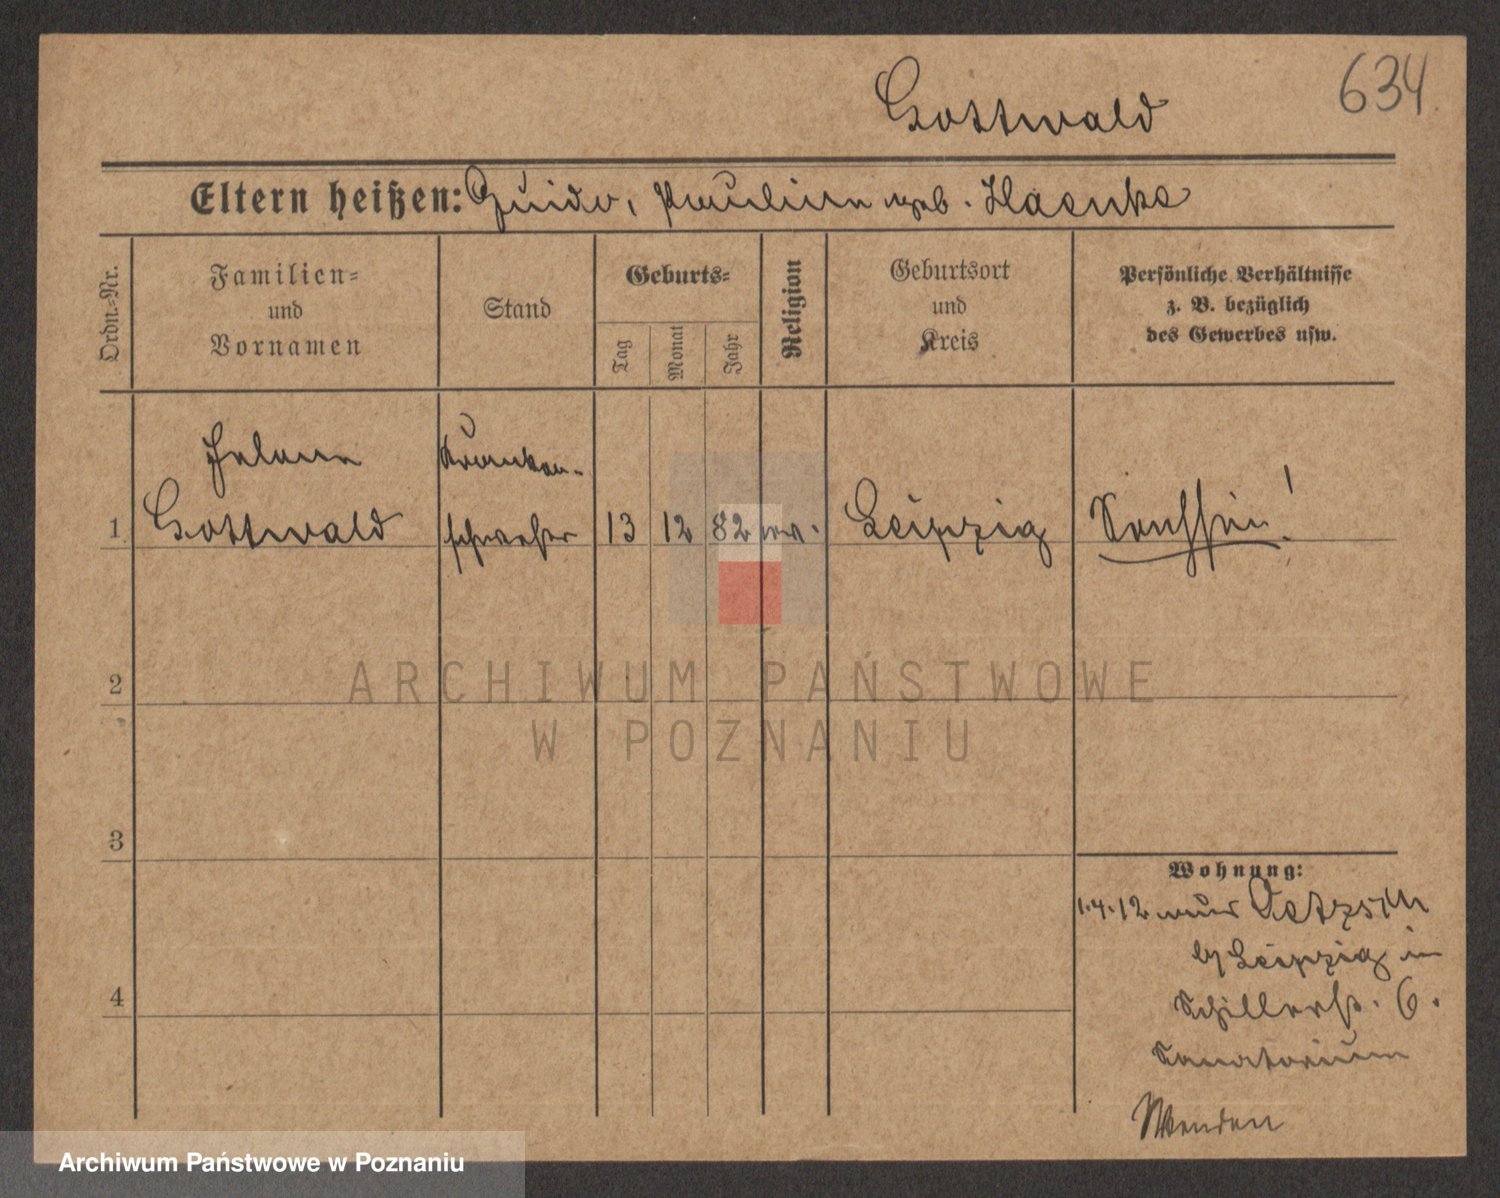 634.
Gottwald
Eltern heißen: Guido, Pauline geb. Haenke
Ordn.-Nr.
Familien-
und
Vornamen
Stand
Geburts-
Tag
Monat
Jahr
Religion
Geburtsort
und
Kreis
Persönliche Verhältnisse
z. B. bezüglich
des Gewerbes usw.
Helene
Kranken-
1 Gottwald schwester 13 12 82 ev. Leipzig
2
3
4
Wohnung:
1.4.12 nach Oetzsch
b/ Leipzig in
Schillerstr. 6.
Sanatorium
Wenden
ARCHIWUM PAŃSTWOWE
W POZNANIU
Archiwum Państwowe w Poznaniu